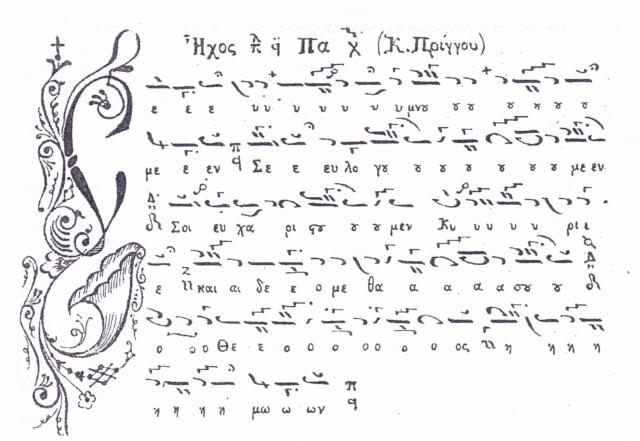 Ἦχος π̈ q̈ Πα (Κ. Πρίγγου)
ε ε ε υυ υ υ υ υ υμνου ου ου ου ου
με ε εν Σε ε ευ λο γου ου ου ου ου ου ου ου με εν
Σοι ευ χα ρι στου ου ου μεν Κυ υ υ υ υ ριε
ε και αι δε ε ο με θα α α α α σου ου
ο οο Θε ε ο ο ο οο ο ο ο ος η η η η
η η η η μω ω ων